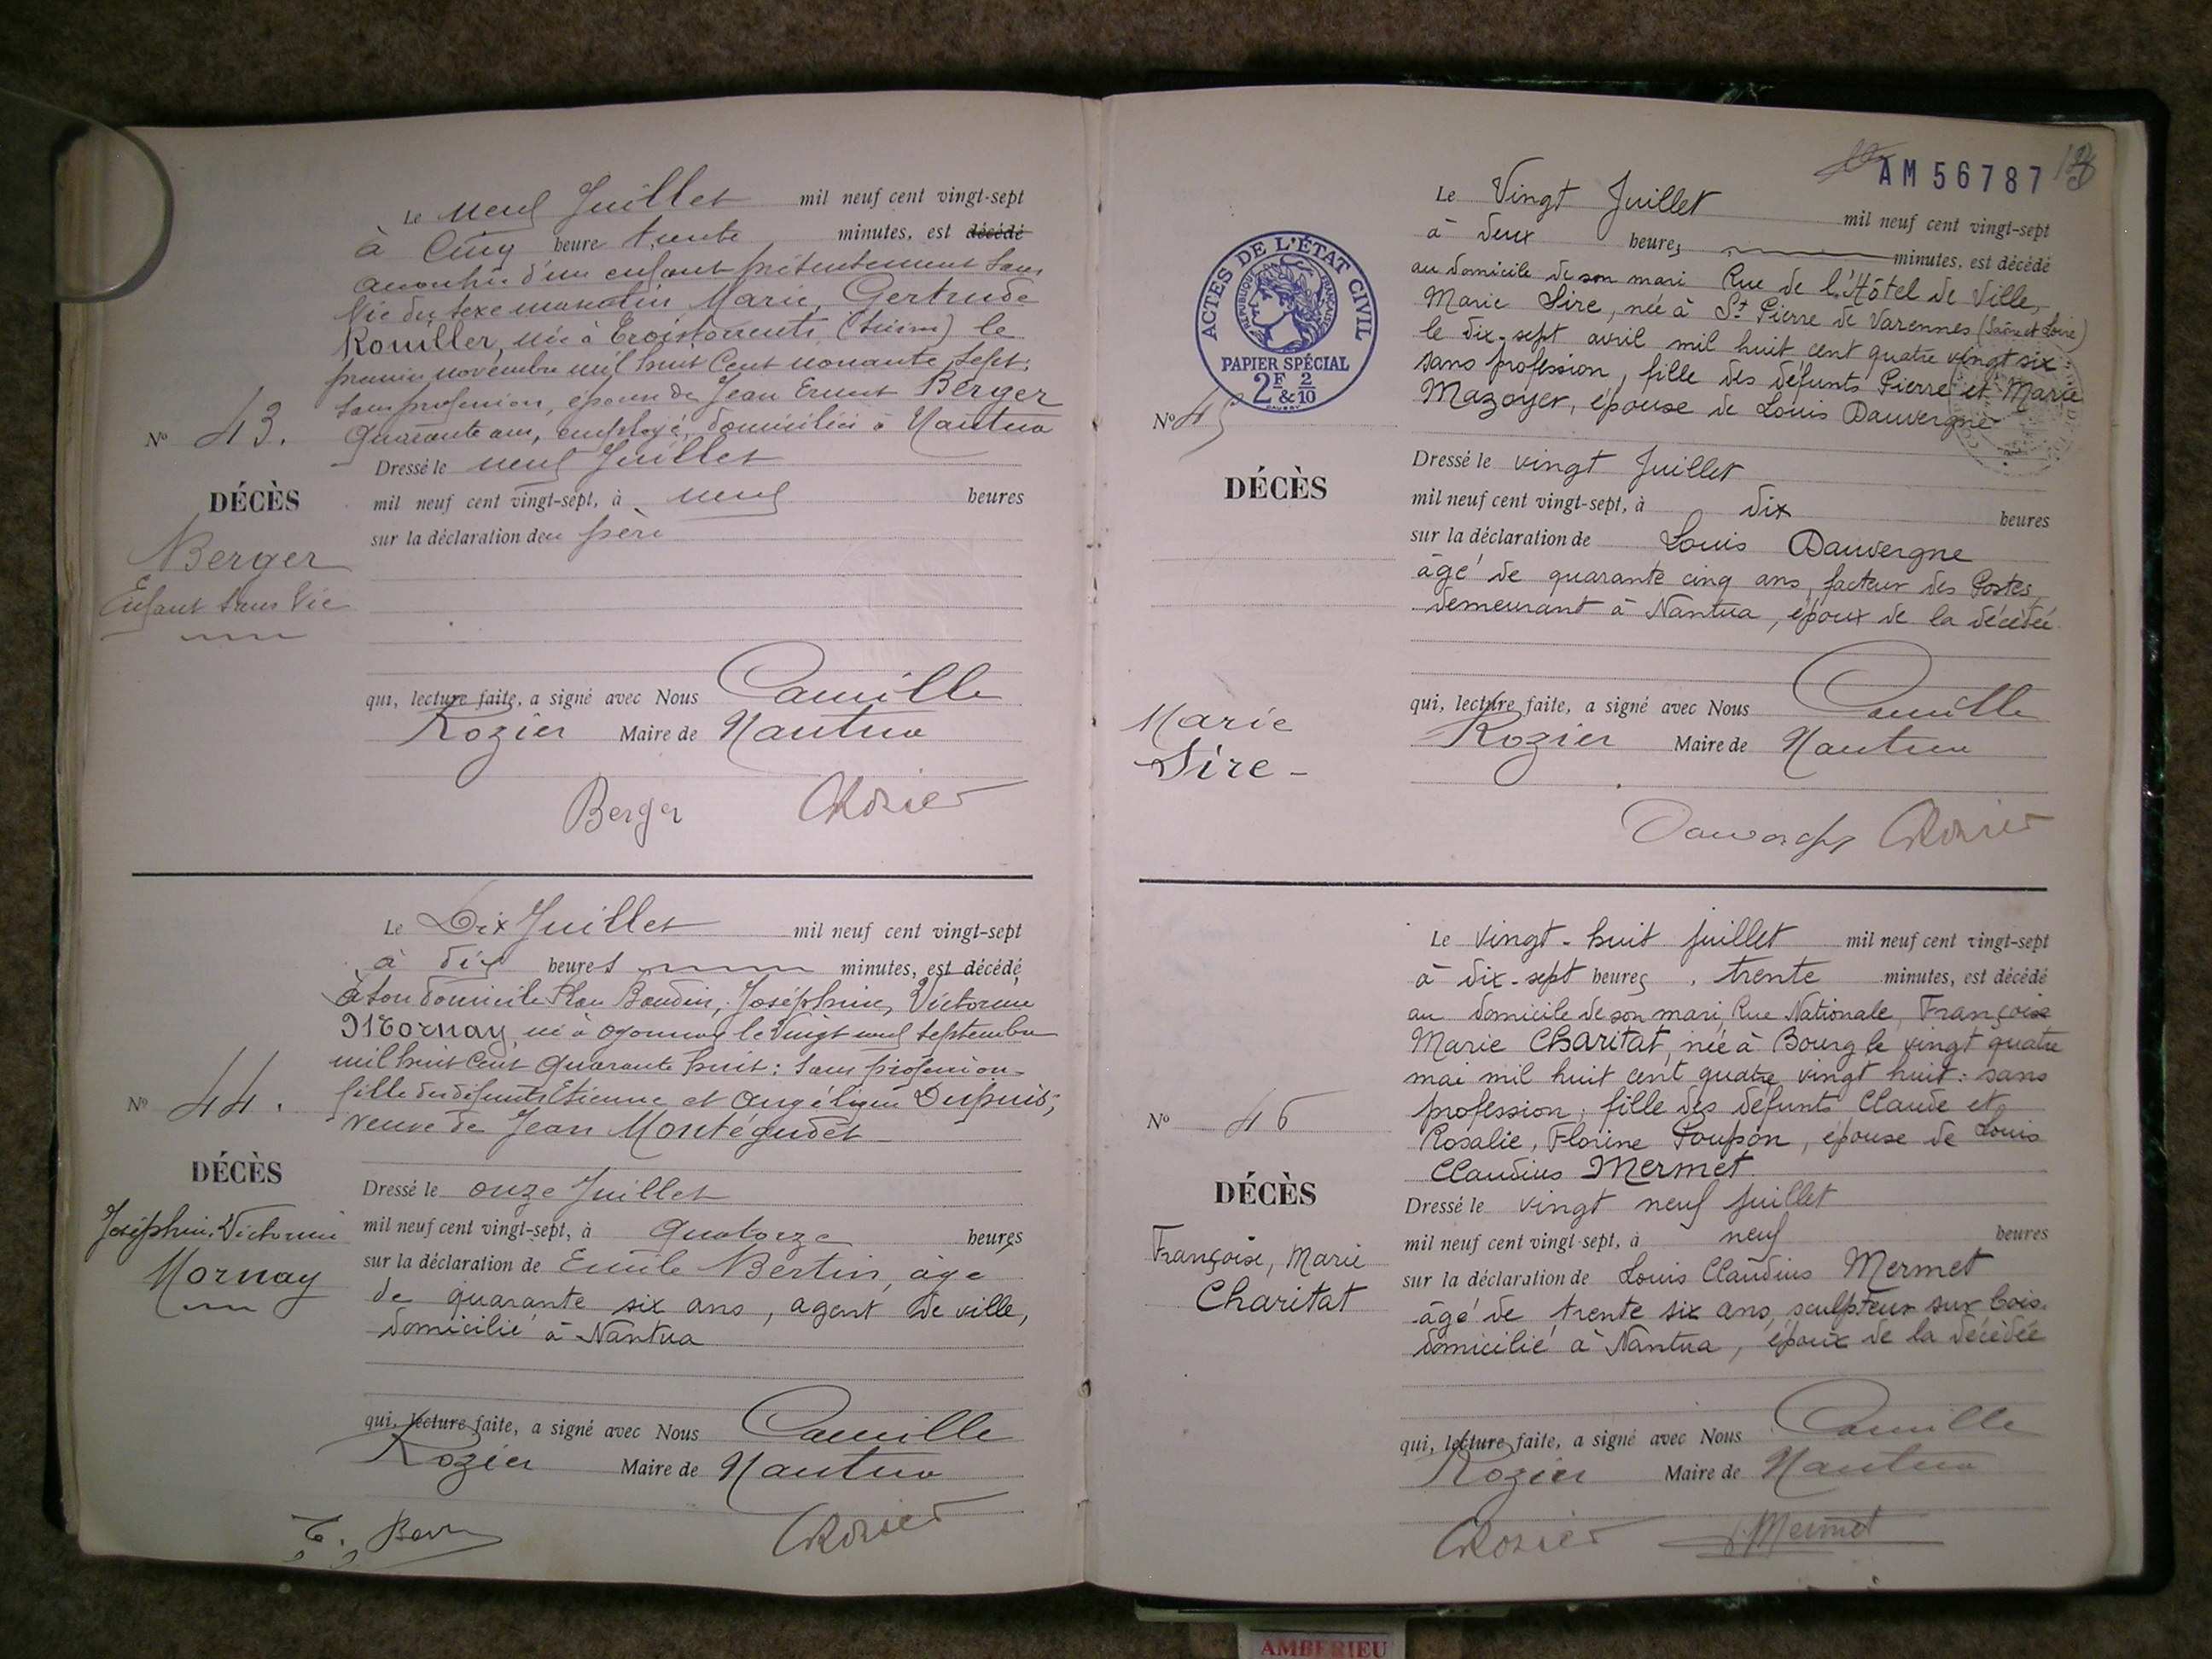 Le neuf Juillet mil neuf cent vingt-sept
à Cinq heure trente minutes, est décédé
accouchée d'un enfant présentement sans
Vie du sexe masculin Marie, Gertrude
Rouiller, née à Troistorrents (Suisse) le
premier novembre mil huit Cent nonante sept:
sans profession, épouse de Jean Ernest Berger
quarante ans, employé, domiciliés à Nantua
N° 43.
Dressé le neuf Juillet
mil neuf cent vingt-sept, à neuf heures
sur la déclaration deu père
DÉCÈS
Berger
Enfant sans Vie
qui, lecture faite, a signé avec Nous Camille
Rozier Maire de Nantua
Berger CRozier
Le Dix Juillet mil neuf cent vingt-sept
à dix heures minutes, est décédé
à son domicile Place Baudin, Joséphine, Victorine
Mornay, née à Oyonnax le Vingt neuf Septembre
mil huit Cent Quarante huit: sans profession
fille des défunts Etienne et Angélique Dupuis;
veuve de Jean Montégudet
N° 44.
DÉCÈS
Joséphine, Victorine
Mornay
Dressé le onze Juillet
mil neuf cent vingt-sept, à Quatorze heures
sur la déclaration de Emile Bertin, âgé
de quarante six ans, agent de ville,
domicilié à Nantua
qui, lecture faite, a signé avec Nous Camille
Rozier Maire de Nantua
CRozier
AM 56787
Le Vingt Juillet mil neuf cent vingt-sept
à deux heures minutes, est décédé
au domicile de son mari Rue de l'Hôtel de Ville,
Marie Sire, née à St Pierre de Varennes (Saône et Loire)
le dix-sept avril mil huit cent quatre vingt six:
sans profession, fille des défunts Pierre et Marie
Mazoyer, épouse de Louis Dauvergne
ACTES DE L'ÉTAT CIVIL
RÉPUBLIQUE FRANÇAISE
PAPIER SPÉCIAL
2F & 2/10
N° 45
DÉCÈS
Marie
Sire-
Dressé le vingt Juillet
mil neuf cent vingt-sept, à dix heures
sur la déclaration de Louis Dauvergne
âgé de quarante cinq ans, facteur des Postes,
demeurant à Nantua, époux de la décédée
qui, lecture faite, a signé avec Nous Camille
Rozier Maire de Nantua
CRozier
Le vingt-huit juillet mil neuf cent vingt-sept
à dix-sept heures trente minutes, est décédé
au domicile de son mari, Rue Nationale, Françoise
Marie Charitat, née à Bourg le vingt quatre
mai mil huit cent quatre vingt huit: sans
profession, fille des défunts Claude et
Rosalie, Florine Poupon, épouse de Louis
Claudius Mermet
N° 46
DÉCÈS
Françoise, Marie
Charitat
Dressé le vingt neuf juillet
mil neuf cent vingt-sept, à neuf heures
sur la déclaration de Louis Claudius Mermet
âgé de trente six ans, sculpteur sur bois
domicilié à Nantua, époux de la décédée
qui, lecture faite, a signé avec Nous Camille
Rozier Maire de Nantua
CRozier Mermet
AMBERIEU